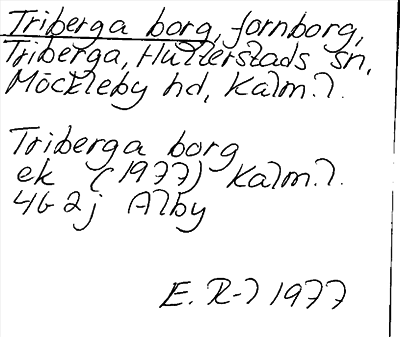 Triberga borg, fornborg,
Triberga, Hulterstads sn,
Möckleby hd, Kalm. l.
Triberga borg
ek (1977) Kalm. l.
4G 2j Alby
E. R-l 1977